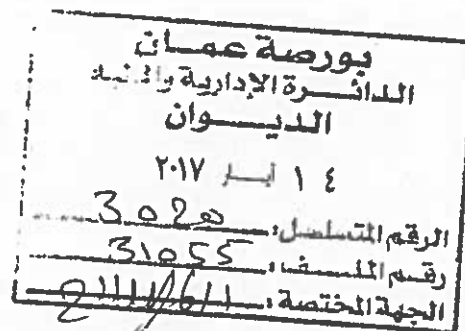 بورصة عمان
الدائرة الإدارية والمالية
الديوان
١٤ أيار ٢٠١٧
الرقم المتسلسل: 3020
رقم الملف: 31055
الجهة المختصة: